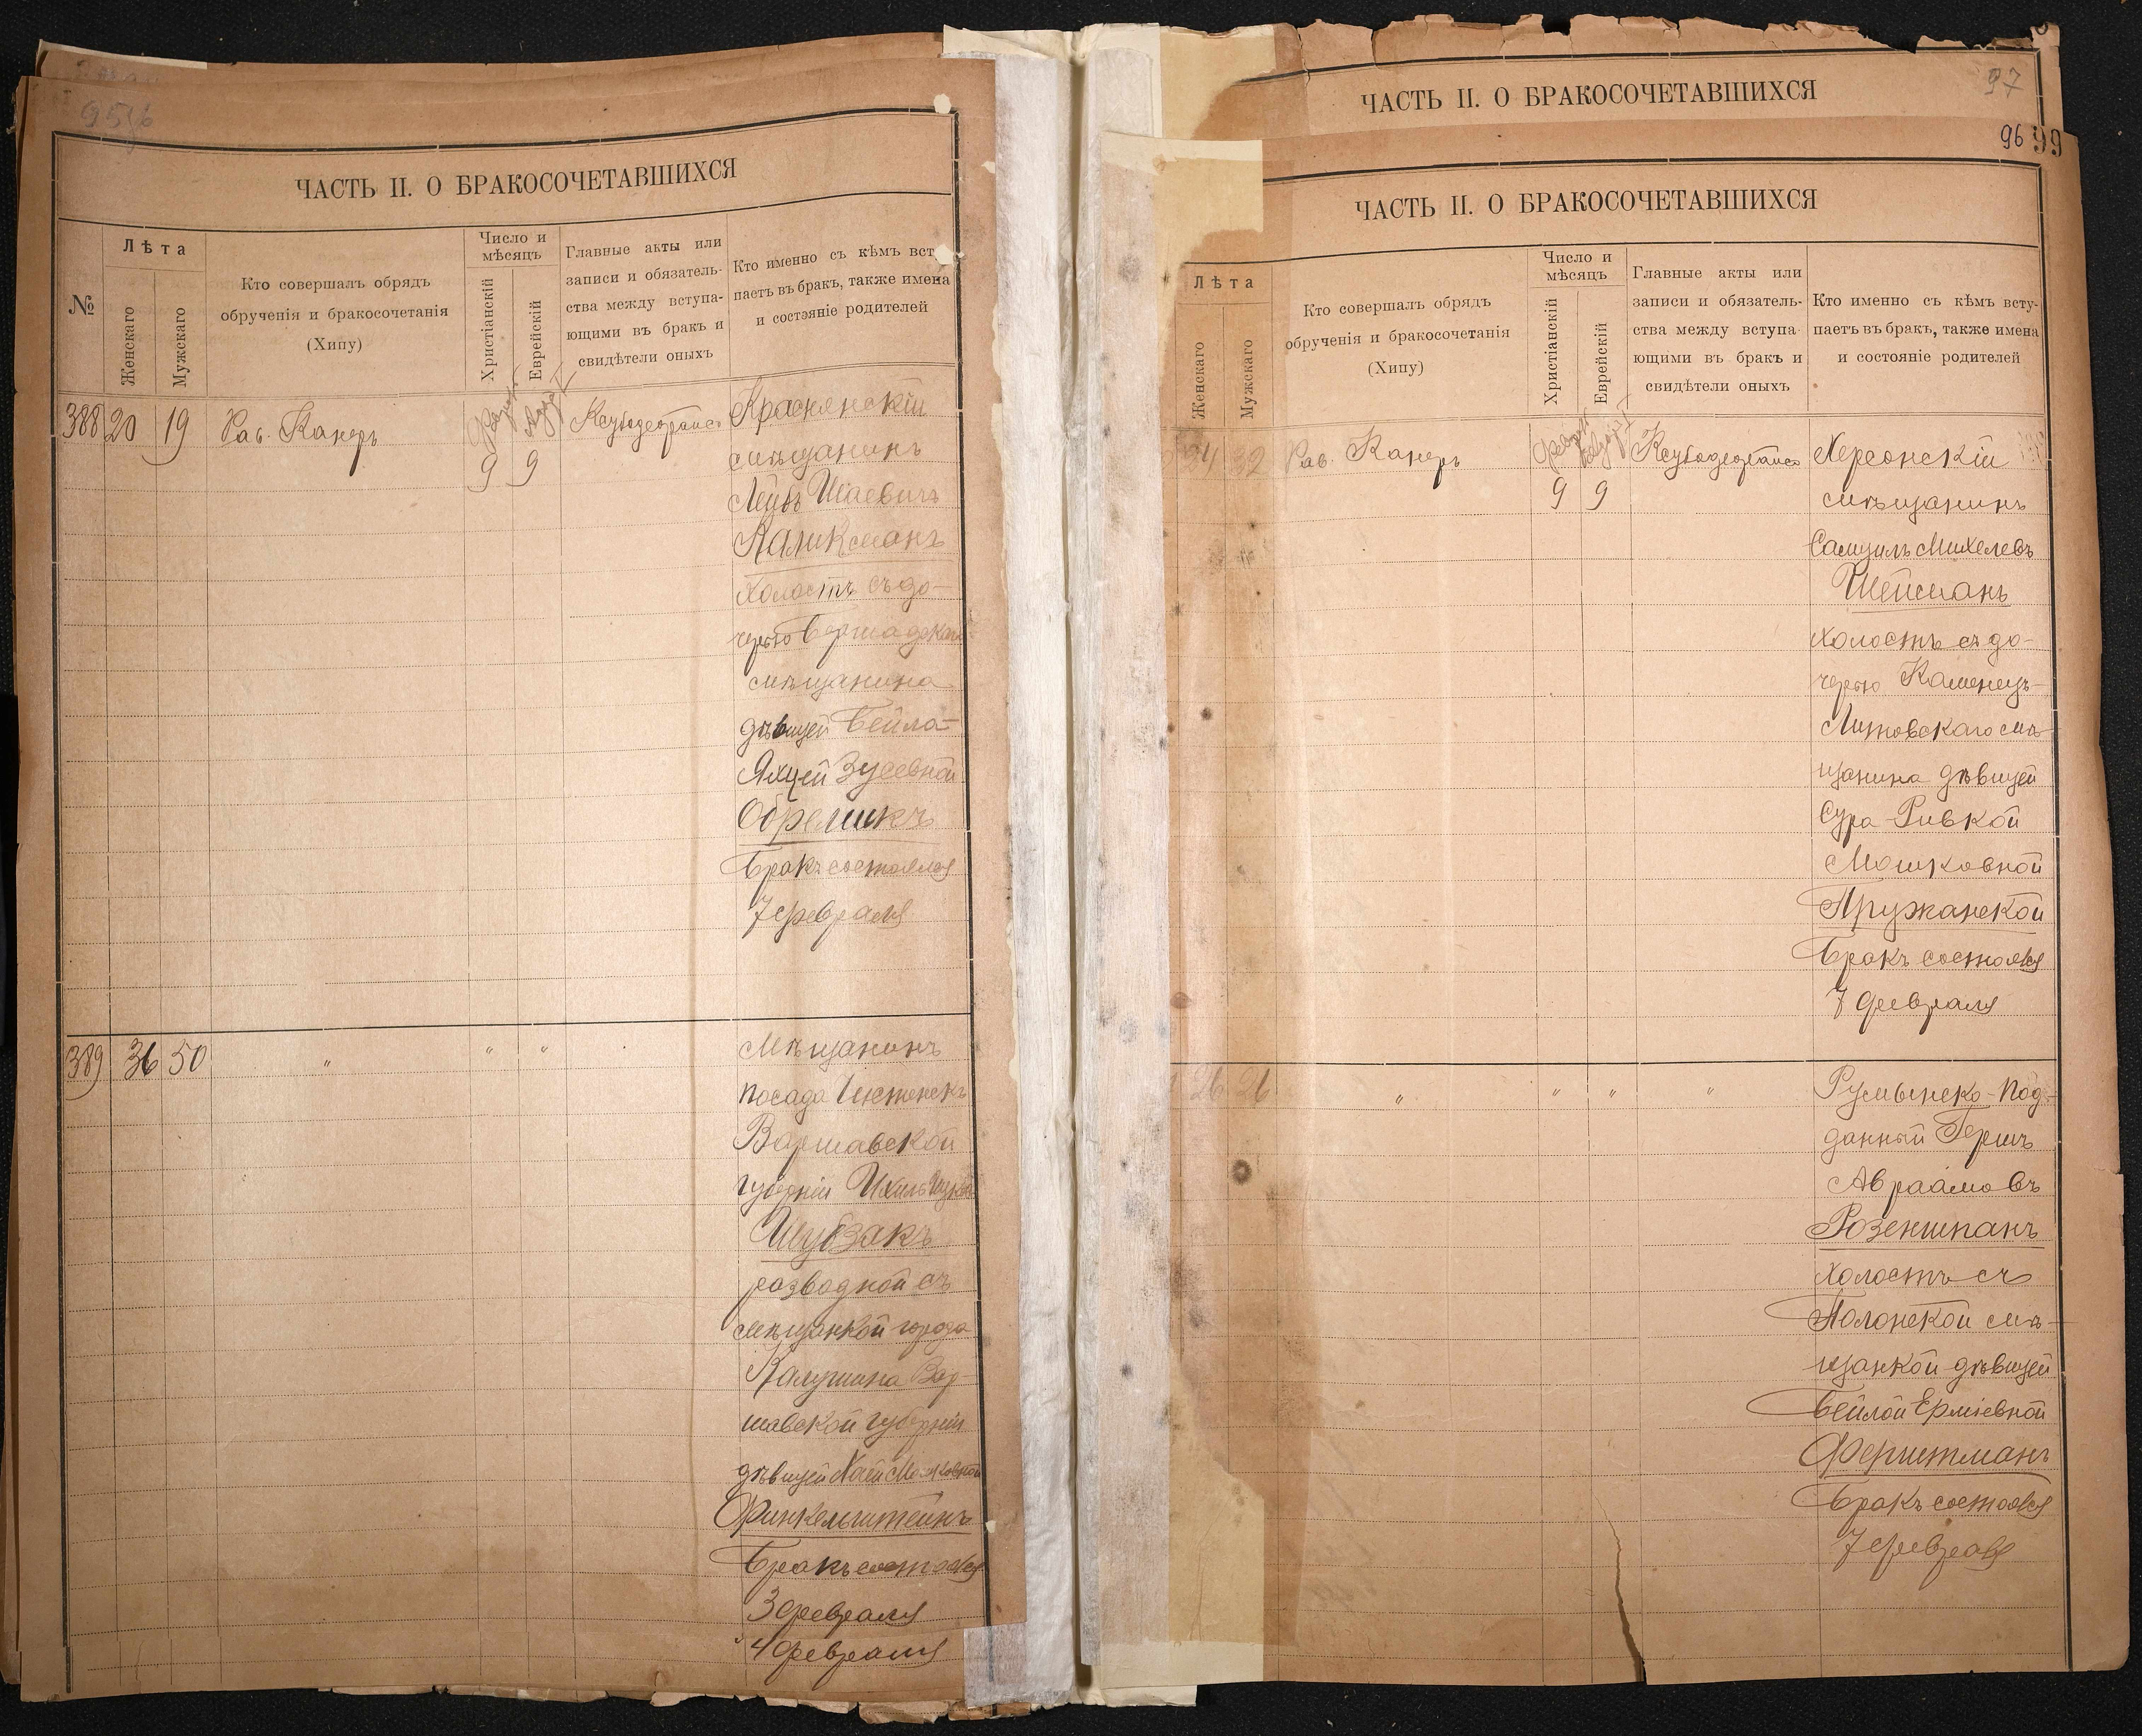 95/6
ЧАСТЬ II. О БРАКОСОЧЕТАВШИХСЯ
№
Лѣта
Женскаго
Мужскаго
Кто совершалъ обрядъ
обрученія и бракосочетанія
(Хипу)
Число и
мѣсяцъ
Христіанскій
Еврейскій
Главные акты или
записи и обязатель-
ства между вступа-
ющими въ бракъ и
свидѣтели оныхъ
Кто именно съ кѣмъ вст
паетъ въ бракъ, также имена
и состояніе родителей
388 20 19 Рав. Канеръ
9 9
мѣщанинъ
Лейбъ Шаевичъ
Каликсманъ
холостъ съ до-
черью Бершадскаго
мѣщанина
дѣвицей Бейла-
Яхцей Зусевной
Обрешикъ
Бракъ состоялся
7 февраля
389 36 50 " " "
Мѣщанинъ
посада
Варшавской
губерніи
Шубзакъ
разводной съ
мѣщанкой города
Калушина Вар-
шавской губерніи
дѣвицей Хаей Мошковной
Финкельштейнъ
Бракъ состоялся
3 февраля
4 февраля
ЧАСТЬ II. О БРАКОСОЧЕТАВШИХСЯ
97
96 99
ЧАСТЬ II. О БРАКОСОЧЕТАВШИХСЯ
Лѣта
Женскаго
Мужскаго
Кто совершалъ обрядъ
обрученія и бракосочетанія
(Хипу)
Число и
мѣсяцъ
Христіанскій
Еврейскій
Главные акты или
записи и обязатель-
ства между вступа-
ющими въ бракъ и
свидѣтели оныхъ
Кто именно съ кѣмъ всту-
паетъ въ бракъ, также имена
и состояніе родителей
24 32 Рав. Канеръ
9 9
Херсонскій
мѣщанинъ
Самуилъ Михелевъ
Шейсманъ
холостъ съ до-
черью Каменецъ-
Литовскаго мѣ-
щанина дѣвицей
Сура-Ривкой
Мошковной
Пружанской
Бракъ состоялся
7 февраля
26 26 " " " "
Румынско-Под-
данный Гершъ
Авраамовъ
Розеншпанъ
холостъ съ
Полонской мѣ-
щанкой дѣвицей
Бейлой Ерміевной
Ферштманъ
Бракъ состоялся
7 февраля